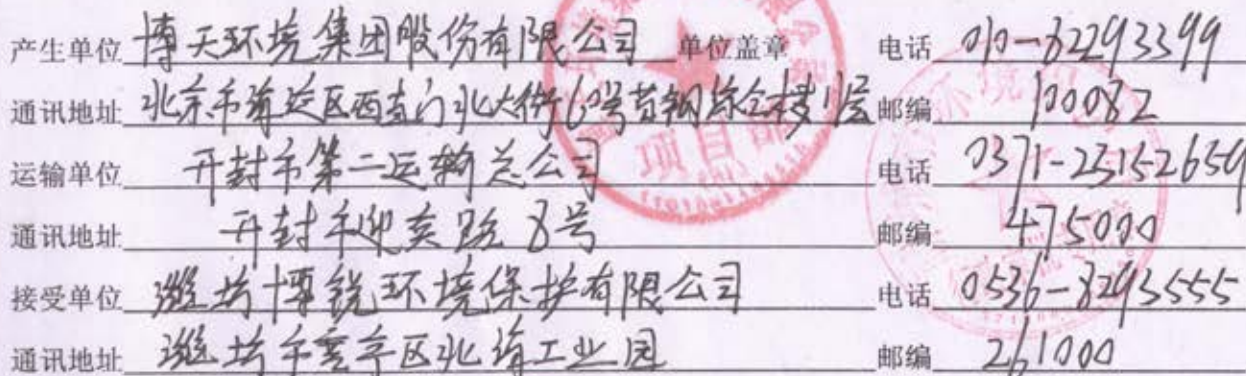 产生单位 博天环境集团股份有限公司 单位盖章 电话 010-82293399
通讯地址 北京市海淀区西直门北大街60号首钢综合楼1层 邮编 100082
运输单位 开封市第二运输总公司 电话 0371-23152659
通讯地址 开封市迎宾路8号 邮编 475000
接受单位 潍坊博锐环境保护有限公司 电话 0536-8293555
通讯地址 潍坊市寒亭区北海工业园 邮编 261000
项目部